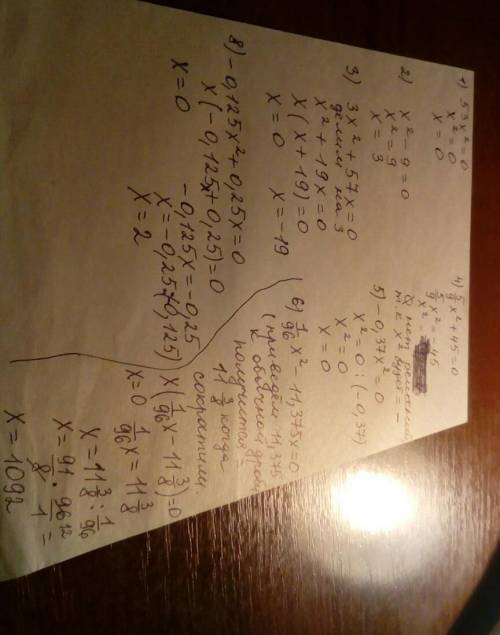 1) 53x²=0
x²=0
x=0
2) x²-9=0
x²=9
x=3
3) 3x²+57x=0
делим на 3
x²+19x=0
x(x+19)=0
x=0 x=-19
8) -0,125x²+0,25x=0
x(-0,125x+0,25)=0
x=0 -0,125x=-0,25
x=-0,25:(-0,125)
x=2
4) 5/9x²+45=0
5/9x²=-45
x²=-
нет решений
т.к x² будет = -
5) -0,37x²=0
x²=0:(-0,37)
x²=0
x=0
6) 1/96x²-11,375x=0
(приведем 11,375
к обычной дроби
получится =
11 3/8 когда
сократим.
x(1/96x-11 3/8)=0
x=0 1/96x=11 3/8
x=11 3/8:1/96
x=91/8·96 12/1=
x=1092